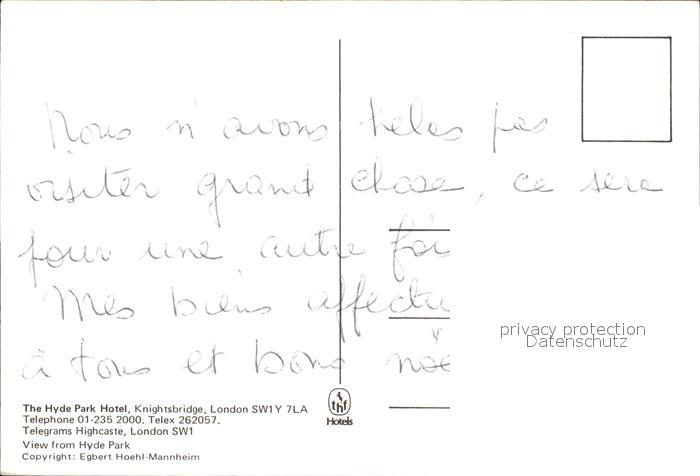 Nous n'avons helas pas
visiter grand chose, ce sera
pour une autre fois
Mes biens affectu
à tous et bons noë
privacy protection
Datenschutz
The Hyde Park Hotel, Knightsbridge, London SW1Y 7LA
Telephone 01-235 2000. Telex 262057.
Telegrams Highcaste, London SW1
View from Hyde Park
Copyright: Egbert Hoehl-Mannheim
thf
Hotels